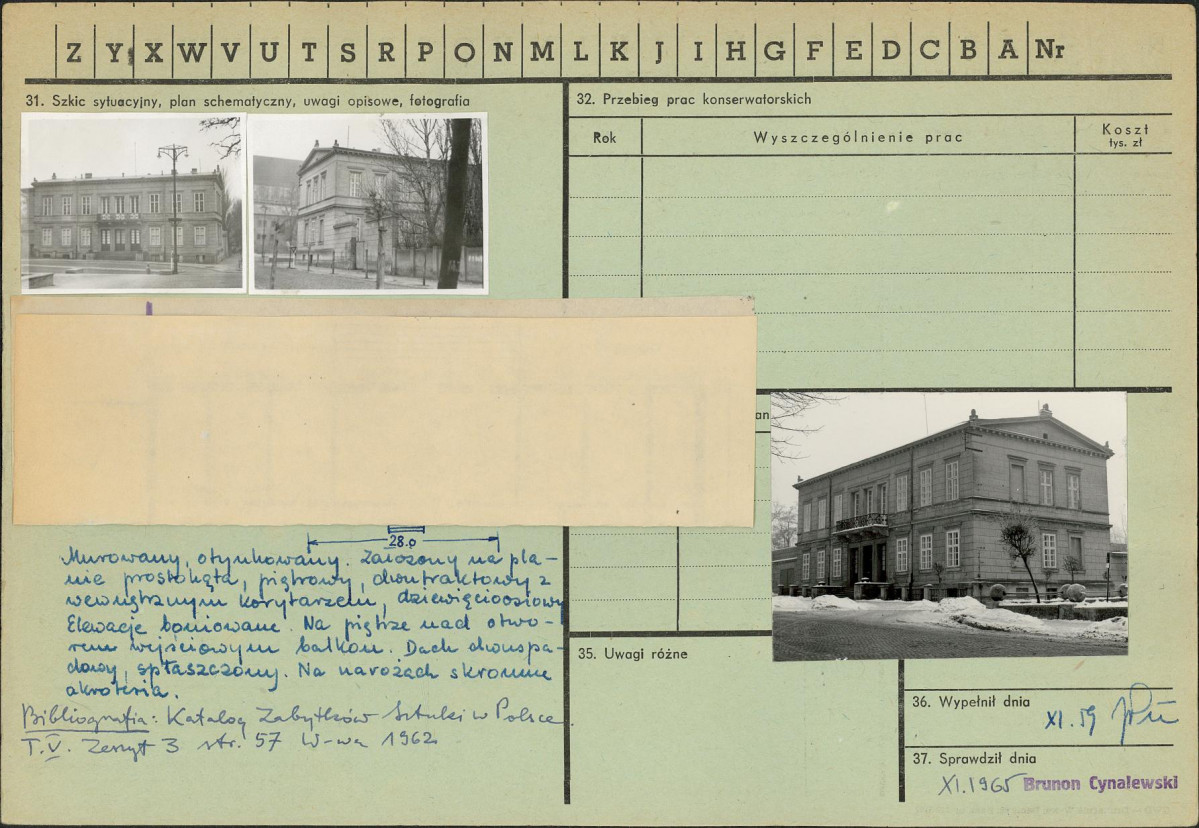 Z Y X W V U T S R P O N M L K J I H G F E D C B A Nr
31. Szkic sytuacyjny, plan schematyczny, uwagi opisowe, fotografia
32. Przebieg prac konserwatorskich
Rok
Wyszczególnienie prac
Koszt
tys. zł
an
28.0
Murowany, otynkowany. Założony na pla-
nie prostokąta, piętrowy, dwutraktowy z
wewnętrznym korytarzem, dziewięcioosiowy
Elewacje boniowane. Na piętrze nad otwo-
rem wejściowym balkon. Dach dwuspa-
dowy, spłaszczony. Na narożach skromne
akroteria.
Bibliografia: Katalog Zabytków Sztuki w Polsce
T. V. Zeszyt 3 str. 57 W-wa 1962
35. Uwagi różne
36. Wypełnił dnia
XI. 59
37. Sprawdził dnia
XI. 1965 Brunon Cynalewski